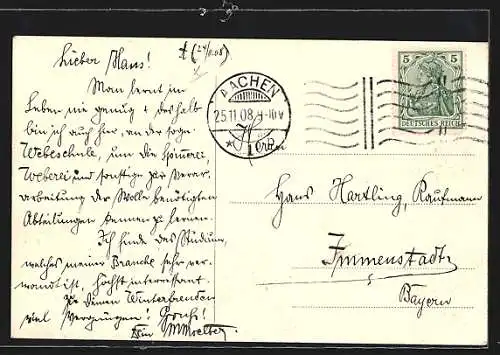 Lieber Hans!
Man lernt im
Leben nie genug & deshalb
bin ich auch hier, an der sogen.
Webeschule, um die Spinnerei,
Weberei und sonstige zur Verar-
arbeitung der Wolle benötigten
Abteilungen kennen zu lernen.
Ich finde das Studium,
welches meiner Branche sehr ver-
wandt ist, höchst interessant.
Zu deinen Winterfreuden
viel Vergnügen! Gruß!
Dein
AACHEN
25.11.08.9-10V
* 1
5 5
DEUTSCHES REICH
Hans Hartling, Kaufmann
Immenstadt
Bayern